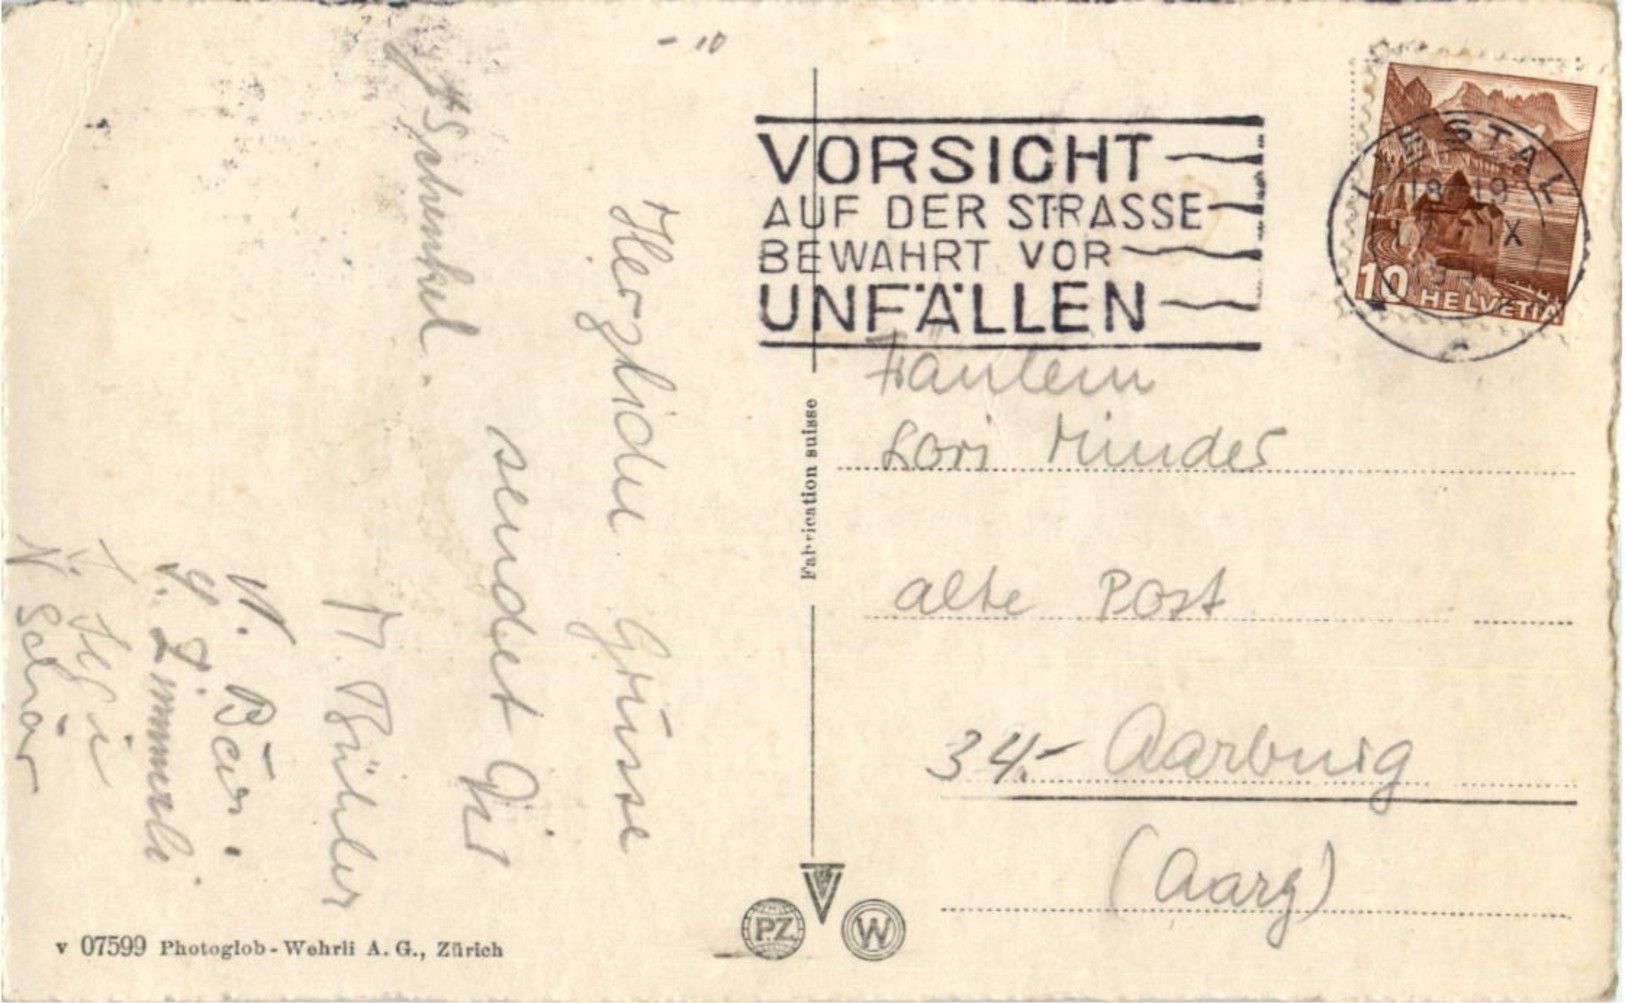 - 10
VORSICHT
AUF DER STRASSE
BEWAHRT VOR
UNFÄLLEN
LIESTAL
18 19
IX
10 HELVETIA
Fräulein
Lori Minder
alte Post
34.- Aarburg
(Aarg)
Fabrication suisse
Herzliche Grüsse
sendet
M. Bühler
Schenkel.
W. Bär.
Zimmerli
Schär
P.Z. W
v 07599 Photoglob-Wehrli A. G., Zürich